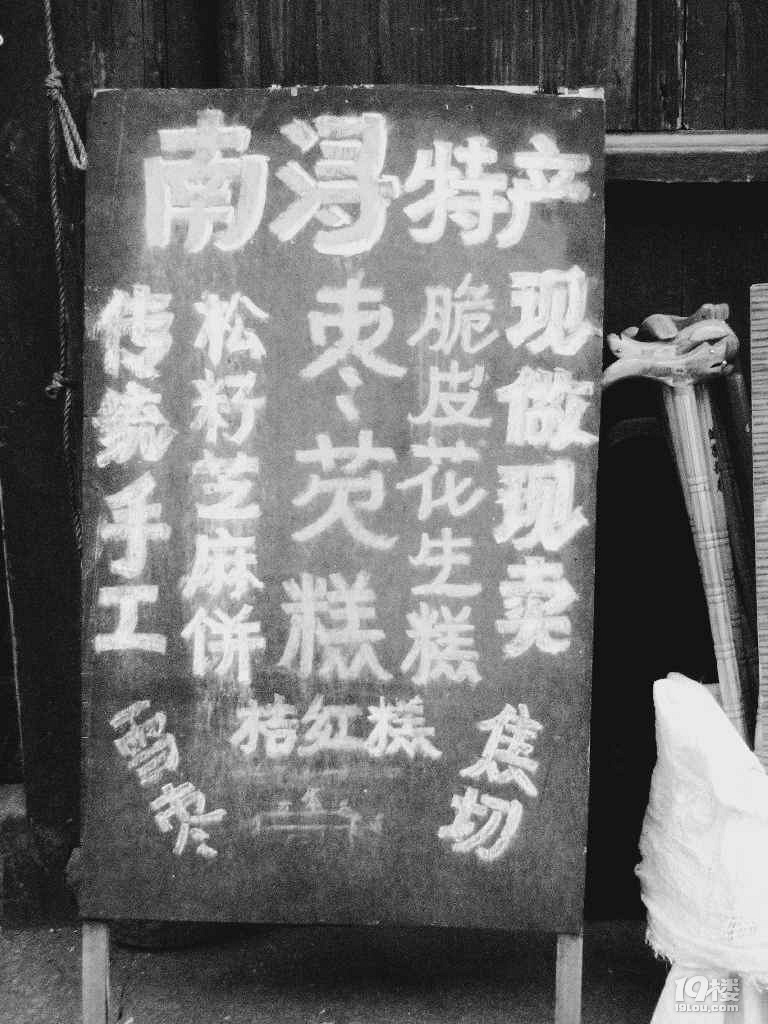 南浔特产
传统手工
松籽芝麻饼
枣茨糕
脆皮花生糕
现做现卖
雪枣
桔红糕
焦切
19楼
19lou.com